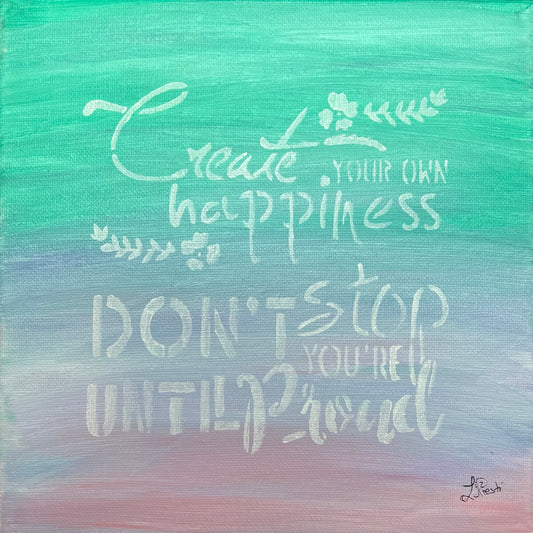 Create YOUR OWN
happiness
DON'T Stop
YOU'RE
UNTIL Proud